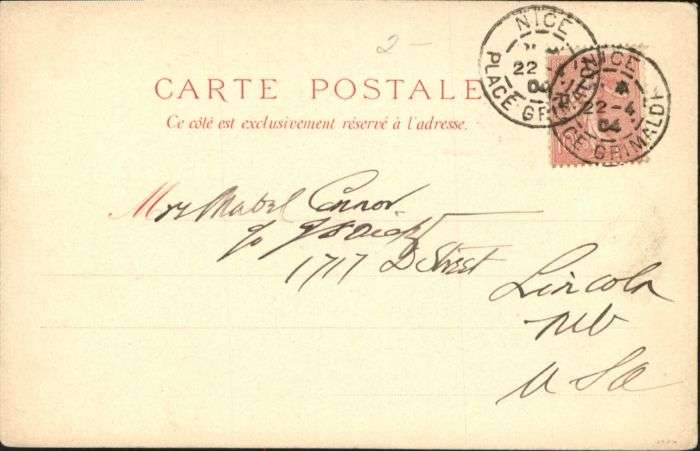 2-
NICE
22 -4
04
PLACE GRIMALDI
NICE
22-4
04
PLACE GRIMALDI
CARTE POSTALE
Ce côté est exclusivement réservé à l'adresse.
Mrs Mabel Connor
c/o
1717 D Street
Lincoln
Neb
USA